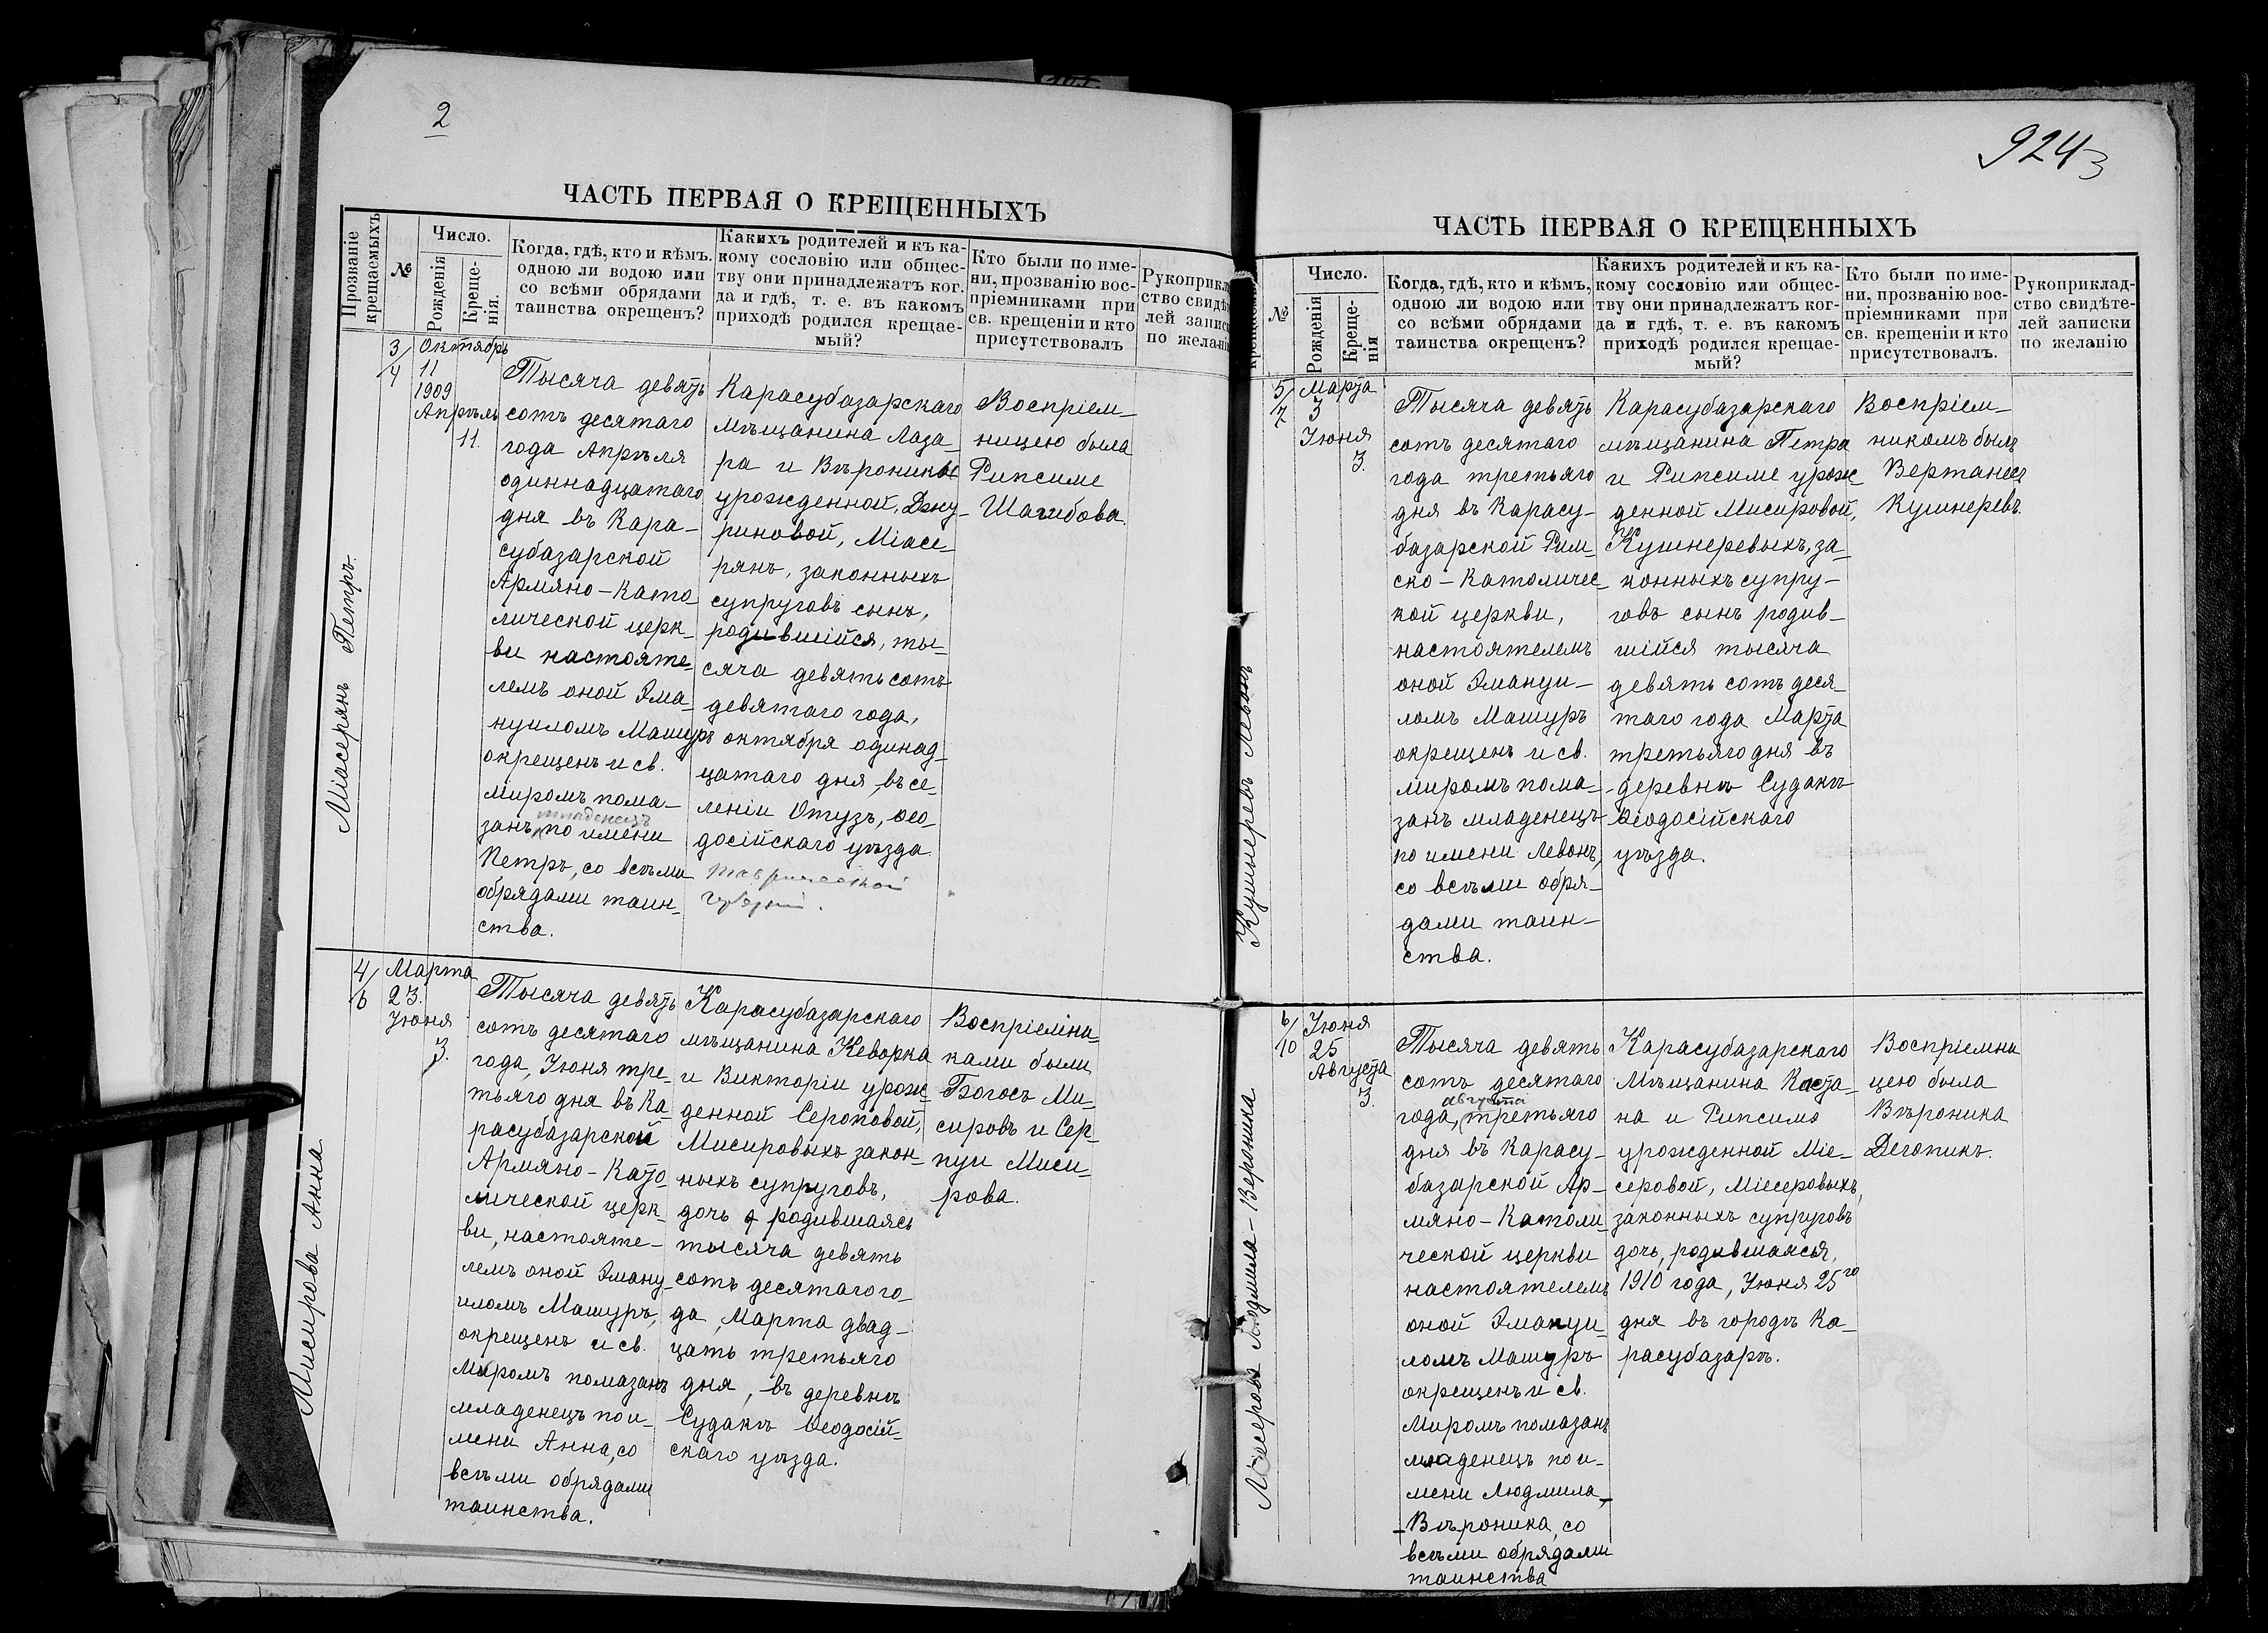 2
ЧАСТЬ ПЕРВАЯ О КРЕЩЕННЫХЪ
Прозваніе крещаемыхъ
№
Число.
Рожденія
Креще-
нія.
Когда, гдѣ, кто и кѣмъ.
одною ли водою или
со всѣми обрядами
таинства окрещенъ?
Какихъ родителей и къ ка-
кому сословію или общес-
тву они принадлежатъ ког.
да и гдѣ, т. е. въ какомъ
приходѣ родился крещае-
мый?
Кто были по име-
ни, прозванію вос-
пріемниками при
св. крещеніи и кто
присутствовалъ
Рукоприкл
ство свидѣт
лей записк
по желані
Міасерянъ Петръ.
3/4
Октябрь
11
1909
Апрѣль
11.
Тысяча девять
сотъ десятаго
года Апрѣля
одиннадцатаго
дня въ Кара-
субазарской
Армяно-Като-
лической церк-
ви настояте-
лемъ оной Эма-
нуиломъ Машуръ
окрещенъ и св.
миромъ пома-
младенецъ
занъ, по имени
Петръ, со всѣми
обрядами таин-
ства.
Карасубазарскаго
мѣщанина Лаза-
ра и Вѣроники
урожденной, Джу-
риновой, Міасе-
рянъ, законныхъ
супруговъ сынъ,
родившійся, ты-
сяча девятьсотъ
девятаго года,
октября одинад-
цатаго дня, въ се-
леніи Отузъ, Ѳео-
досійскаго уѣзда.
Таврической
Губерніи.
Воспріем-
ницею была
Рипсиме
Шагибова.
Мисирова Анна
4/6
Марта
23.
Іюня
3.
Тысяча девять
сотъ десятаго
года, Іюня тре-
тьяго дня въ Ка-
расубазарской
Армяно-Като-
лической церк-
ви, настояте-
лемъ оной Эману-
иломъ Машуръ,
окрещенъ и св.
Миромъ помазанъ
младенецъ по и-
мени Анна, со
всѣми обрядами
таинства.
Карасубазарскаго
мѣщанина Кеворка
и Викторіи урож-
денной Сероповой,
Мисировыхъ закон-
ныхъ супруговъ,
дочь родившаясь
тысяча девять
сотъ десятаго го-
да, Марта двад-
цать третьяго
дня, въ деревнѣ
Судакѣ Ѳеодосій-
скаго уѣзда.
Воспріемни-
ками были
Богосъ Ми-
сировъ и Сер-
пуи Миси-
рова.
924
3
ЧАСТЬ ПЕРВАЯ О КРЕЩЕННЫХЪ
крещаемыхъ
№
Число.
Рожденія
Креще-
нія
Когда, гдѣ, кто и кѣмъ,
одною ли водою или
со всѣми обрядами
таинства окрещенъ?
Какихъ родителей и къ ка-
кому сословію или общес-
тву они принадлежатъ ког-
да и гдѣ, т. е. въ какомъ
приходѣ родился крещае-
мый?
Кто были по име-
ни, прозванію вос-
пріемниками при
св. крещеніи и кто
присутствовалъ.
Рукоприклад-
ство свидѣте-
лей записки
по желанію
Кушнеревъ Левонъ
5/7
Марта
3
Іюня
3.
Тысяча девять
сотъ десятаго
года третьяго
дня въ Карасу-
базарской Рим-
ско-Католичес-
кой церкви,
настоятелемъ
оной Эмануи-
ломъ Машуръ
окрещенъ и св.
миромъ пома-
занъ младенецъ
по имени Левонъ,
со всѣми обря-
дами таин-
ства.
Карасубазарскаго
мѣщанина Петра
и Рипсиме урож-
денной Мисировой,
Кушнеревыхъ, за-
конныхъ супру-
говъ сынъ родив-
шійся тысяча
девять сотъ деся-
таго года Марта
третьяго дня въ
деревнѣ Судакъ
Ѳеодосійскаго
уѣзда.
Воспріем-
никомъ былъ
Вертанесъ
Кушнеревъ.
Міасерова Людмила-Вероника
6/10
Іюня
25
Августа
3.
Тысяча девять
сотъ десятаго
августа
года, третьяго
дня въ Карасу-
базарской Ар-
мяно-Католи-
ческой церкви
настоятелемъ
оной Эмануи-
ломъ Машуръ
окрещенъ и св.
Миромъ помазанъ
младенецъ по и-
мени Людмила-
-Вѣроника, со
всѣми обрядами
таинства
Карасубазарскаго
Мѣщанина Каста-
на и Рипсимэ
урожденной Міе-
серовой, Міесеровыхъ,
законныхъ супруговъ
дочь, родившаяся,
1910 года, Іюня 25го
дня въ городѣ Ка-
расубазарѣ.
Воспріемни
цею была
Вѣроника
Дегопикъ.